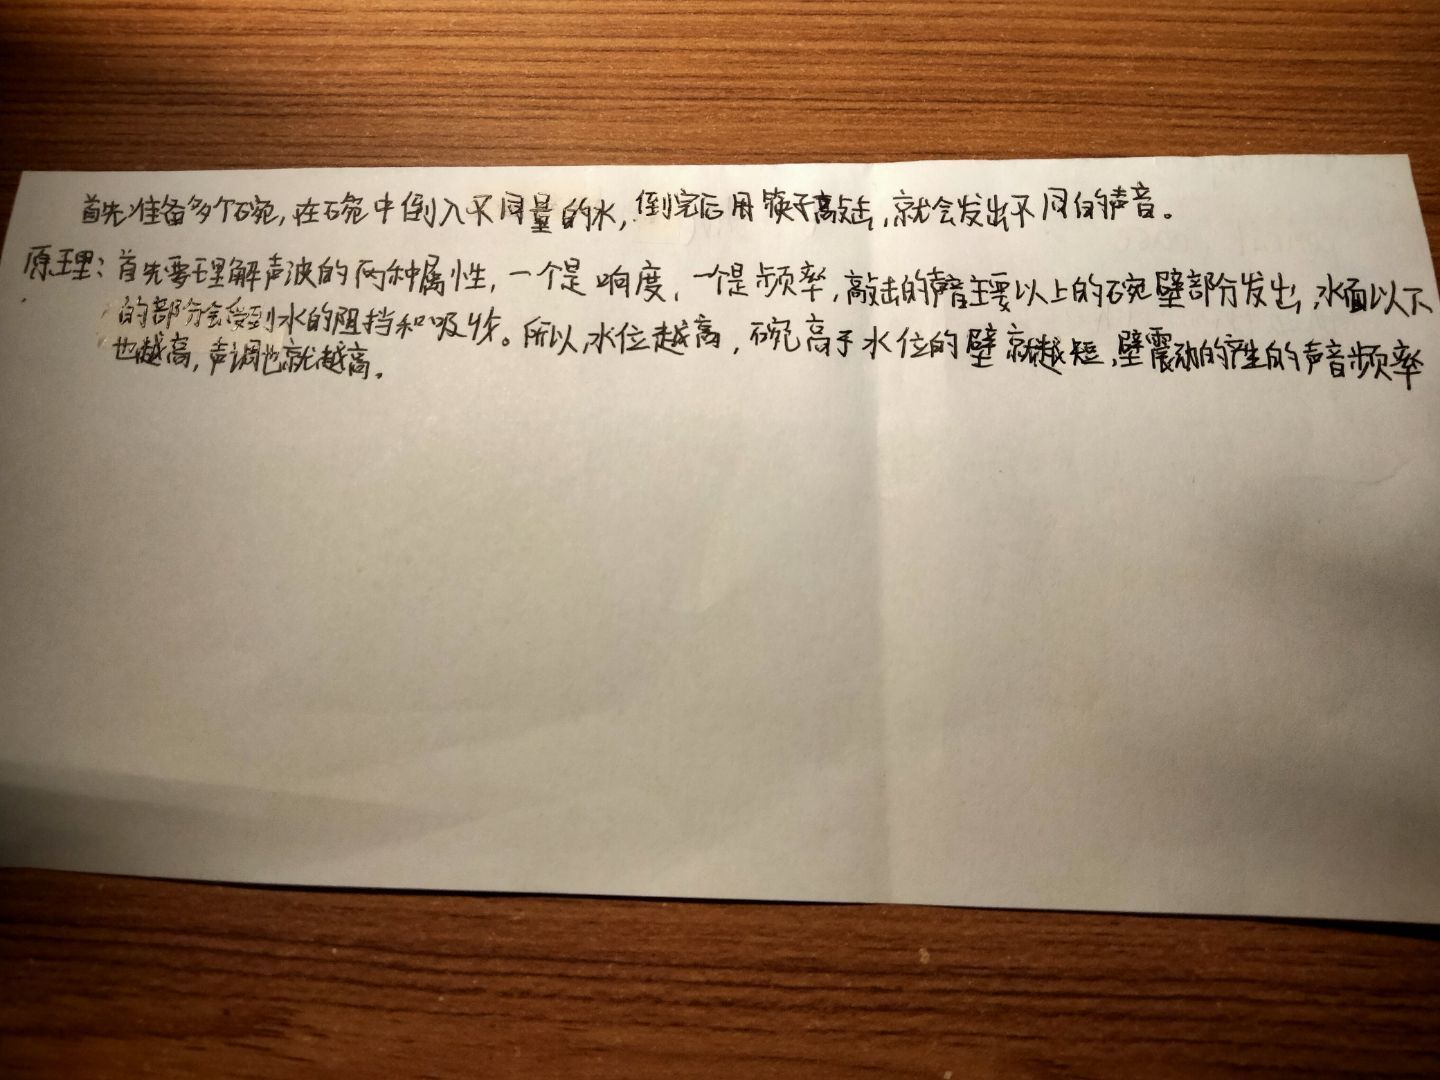 首先准备多个碗,在碗中倒入不同量的水,倒完后用筷子敲击,就会发出不同的声音。
原理:首先要理解声波的两种属性,一个是响度,一个是频率,敲击的声音主要以上的碗壁部分发出,水面以下
的部分会受到水的阻挡和吸收。所以,水位越高,碗高于水位的壁就越短,壁震动的产生的声音频率
也越高,声调也就越高.